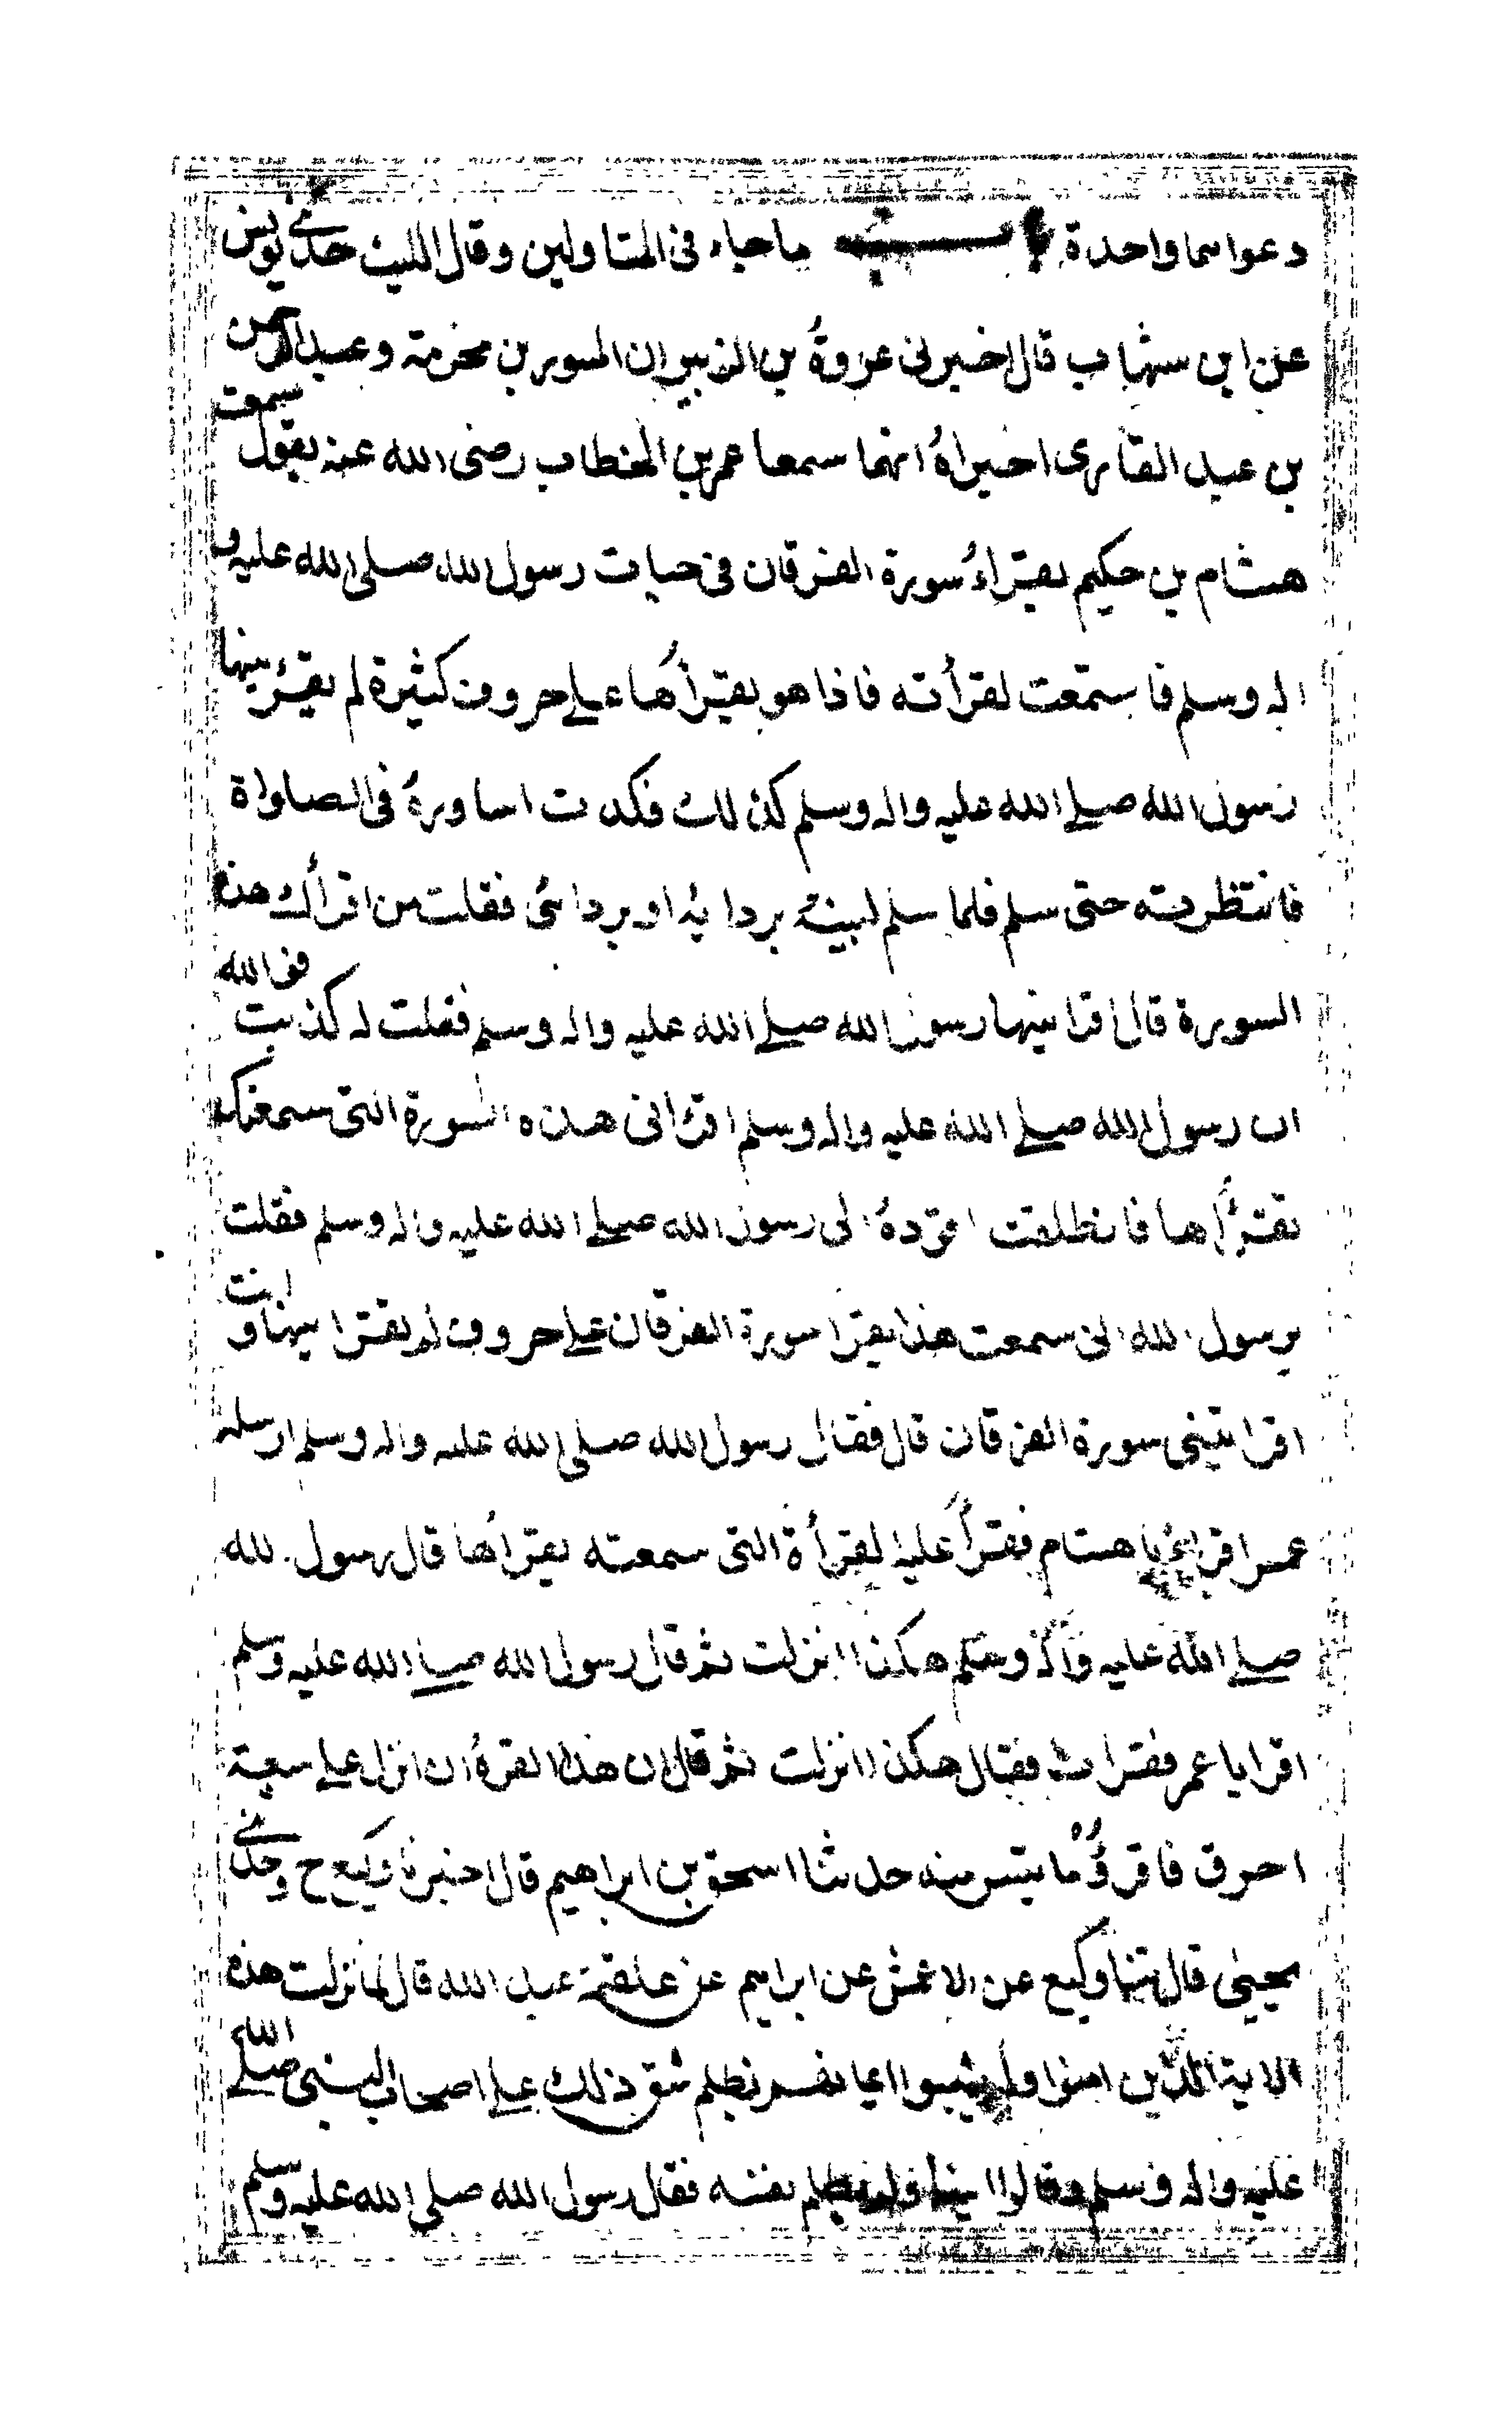 دعواهما واحدة باب ما جاء فى المتاولين وقال الليث حدثنى يونس
عن ابن شهاب قال اخبرنى عروة بن الزبير ان المسور بن مخرمة وعبد الرحمن
بن عبد القارى اخبراه انهما سمعا عمر بن الخطاب رضى الله عنه يقول سمعت
هشام بن حكيم يقراء سورة الفرقان فى حيات رسول الله صلى الله عليه و
اله وسلم فاستمعت لقرأته فاذا هو يقرأها على حروف كثيرة لم يقرئنيها
رسول الله صلى الله عليه واله وسلم كذلك فكدت اساوره فى الصلواة
فانتظرته حتى سلم فلما سلم لببته بردائه او بردائى فقلت من اقرأك هذه
السورة قال اقرانيها رسول الله صلى الله عليه واله وسلم فقلت له كذبت فوالله
ان رسول الله صلى الله عليه واله وسلم اقرانى هذه السورة التى سمعتك
تقرأها فانطلقت اقوده الى رسول الله صلى الله عليه واله وسلم فقلت
يرسول الله انى سمعت هذا يقرا سورة الفرقان على حروف لم تقرانيها و انت
اقراتينى سورة الفرقان قال فقال رسول الله صلى الله عليه واله وسلم ارسله
عمر اقرا يا هشام فقرأ عليه القرأة التى سمعته يقرأها قال رسول الله
صلى الله عليه واله وسلم هكذا انزلت ثم قال رسول الله صلى الله عليه وسلم
اقرا يا عمر فقرات فقال هكذا انزلت ثم قال ان هذا القرءان انزل على سبعة
احرف فاقرؤا ما تيسر منه حدثنا اسحق بن ابراهيم قال اخبرنا وكيع ح وحدثنى
يحيى قال ثنا وكيع عن الاعمش عن ابراهيم عن علقمة عبد الله قال لما نزلت هذه
الاية الذين امنوا ولم يلبسوا ايمانهم بظلم شق ذلك على اصحاب النبى صلى الله
عليه واله وسلم وقالوا اينا لم يظلم نفسه فقال رسول الله صلى الله عليه وسلم